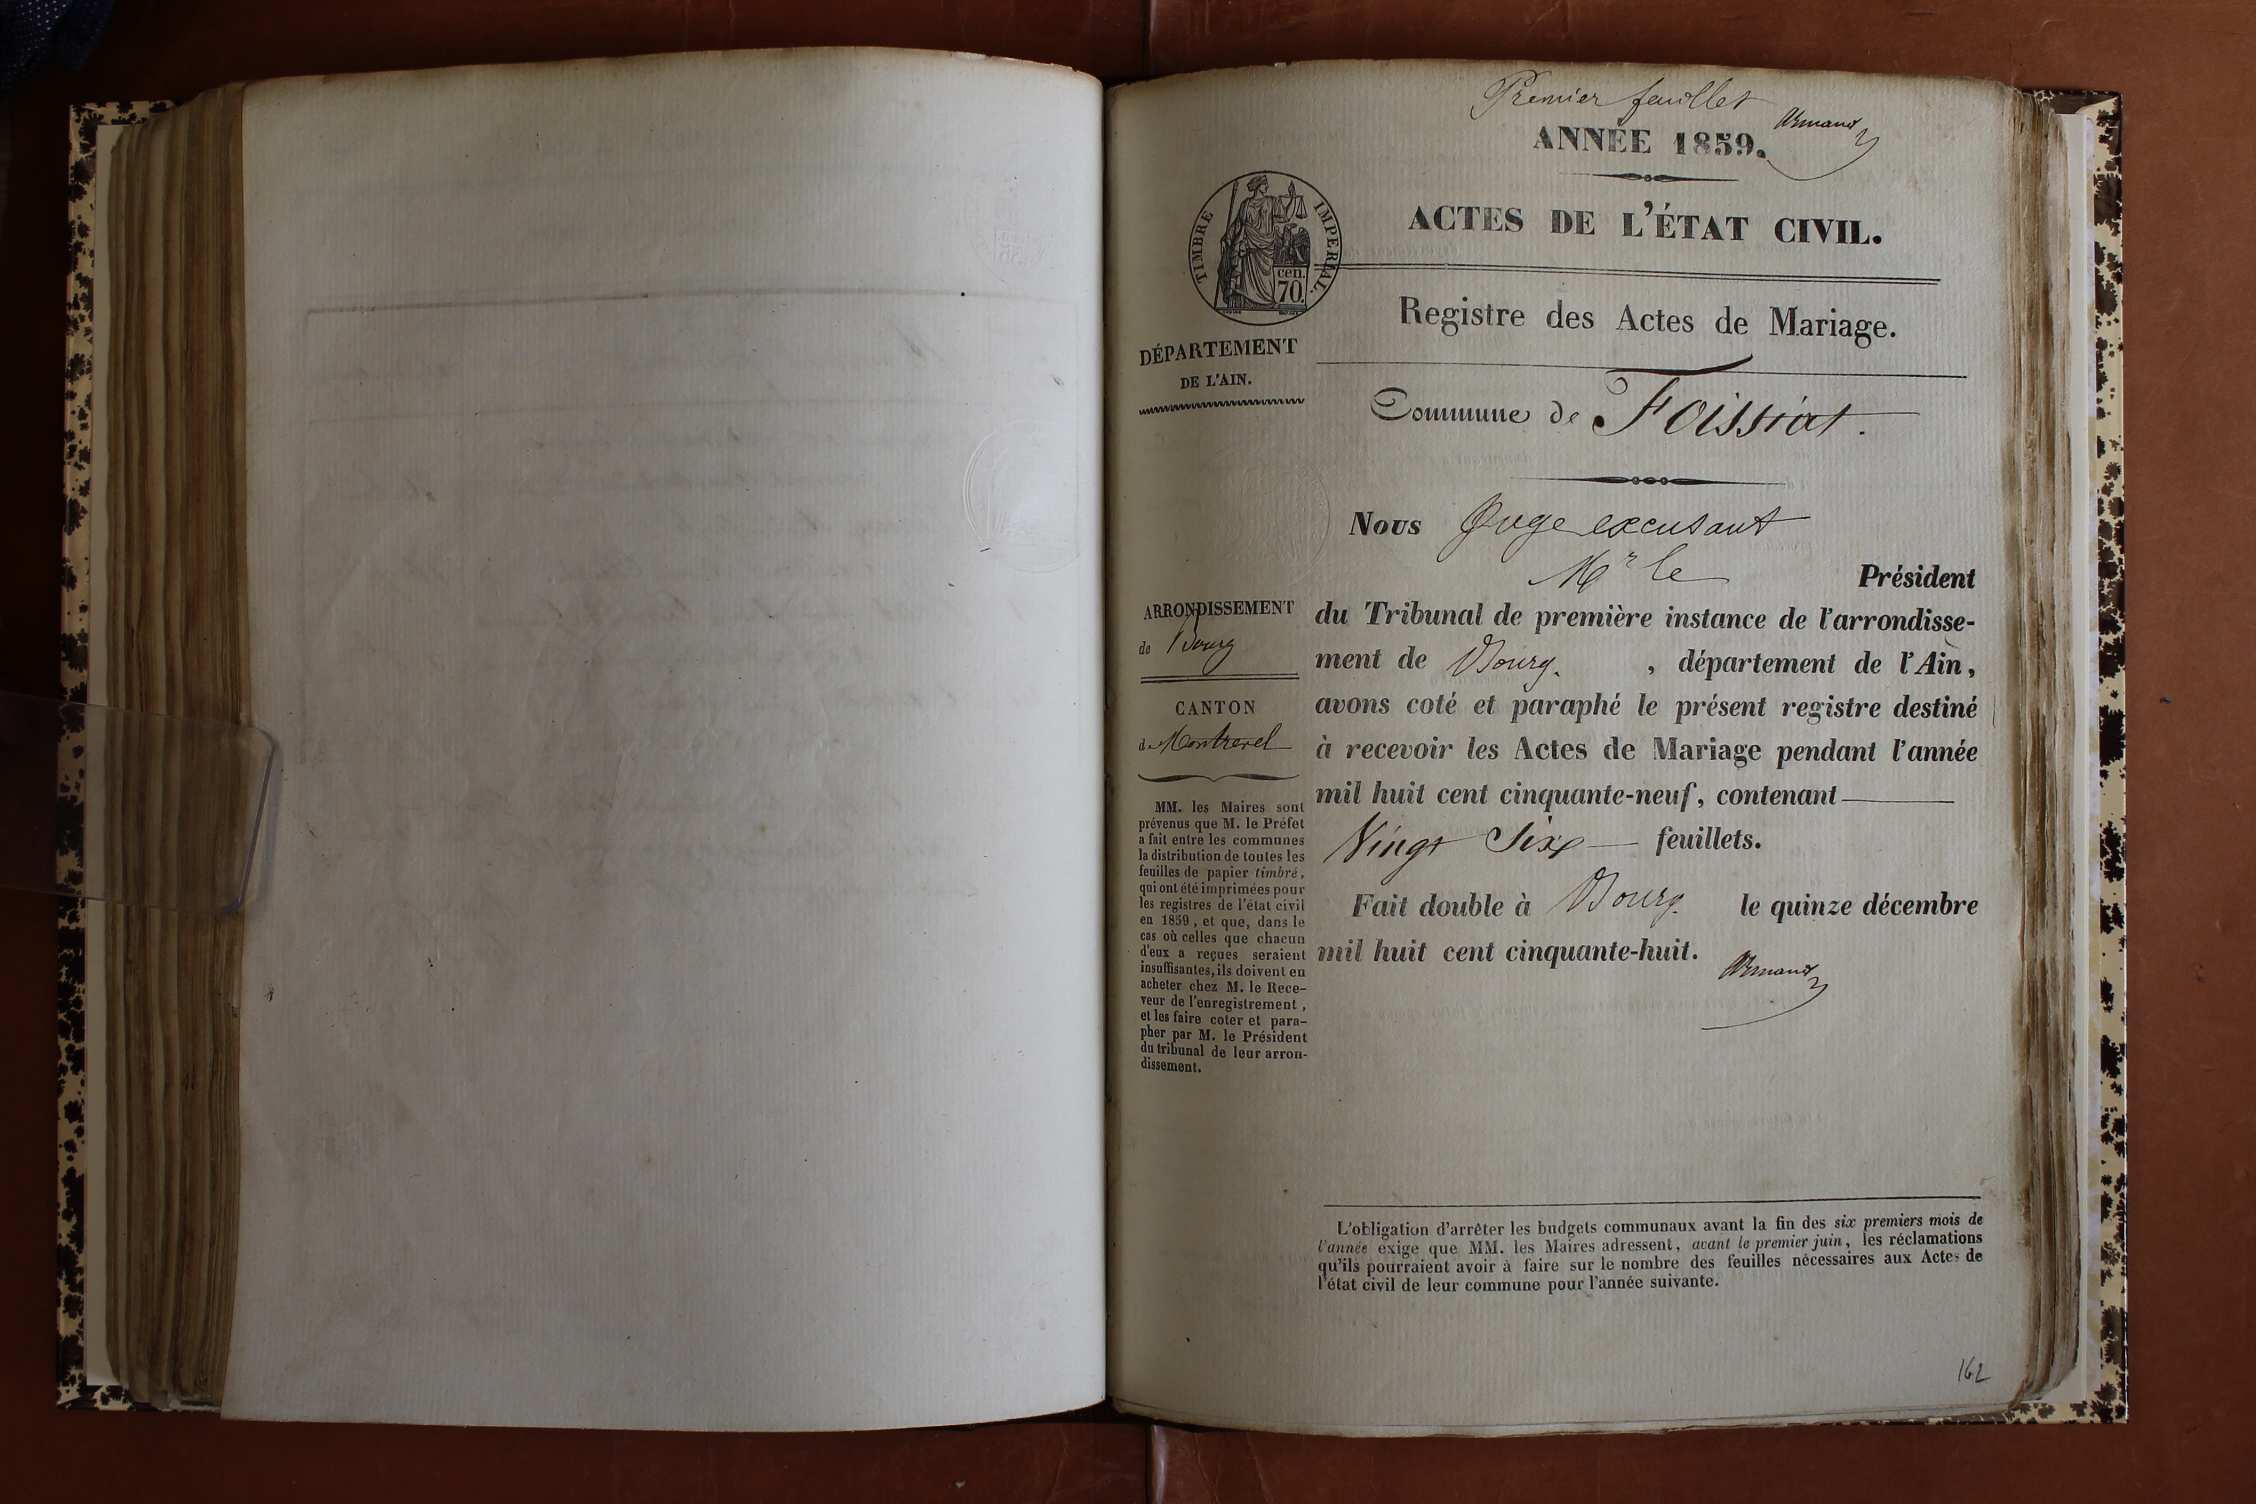 Premier feuillet
Armand
ANNÉE 1859.
ACTES DE L'ÉTAT CIVIL.
TIMBRE IMPERIAL.
cen.
70.
Registre des Actes de Mariage.
DÉPARTEMENT
DE L'AIN.
Commune de Foissiat.
Nous Juge excusant
Mr le Président
du Tribunal de première instance de l'arrondisse-
ment de Bourg. , département de l'Ain,
avons coté et paraphé le présent registre destiné
à recevoir les Actes de Mariage pendant l'année
mil huit cent cinquante-neuf, contenant
Vingt Six feuillets.
Fait double à Bourg. le quinze décembre
mil huit cent cinquante-huit.
Armand
ARRONDISSEMENT
de Bourg
CANTON
de Montrevel
MM. les Maires sont
prévenus que M. le Préfet
a fait entre les communes
la distribution de toutes les
feuilles de papier timbré,
qui ont été imprimées pour
les registres de l'état civil
en 1859, et que, dans le
cas où celles que chacun
d'eux a reçues seraient
insuffisantes, ils doivent en
acheter chez M. le Rece-
veur de l'enregistrement,
et les faire coter et para-
pher par M. le Président
du tribunal de leur arron-
dissement.
L'obligation d'arrêter les budgets communaux avant la fin des six premiers mois de
l'année exige que MM. les Maires adressent, avant le premier juin, les réclamations
qu'ils pourraient avoir à faire sur le nombre des feuilles nécessaires aux Actes de
l'état civil de leur commune pour l'année suivante.
162